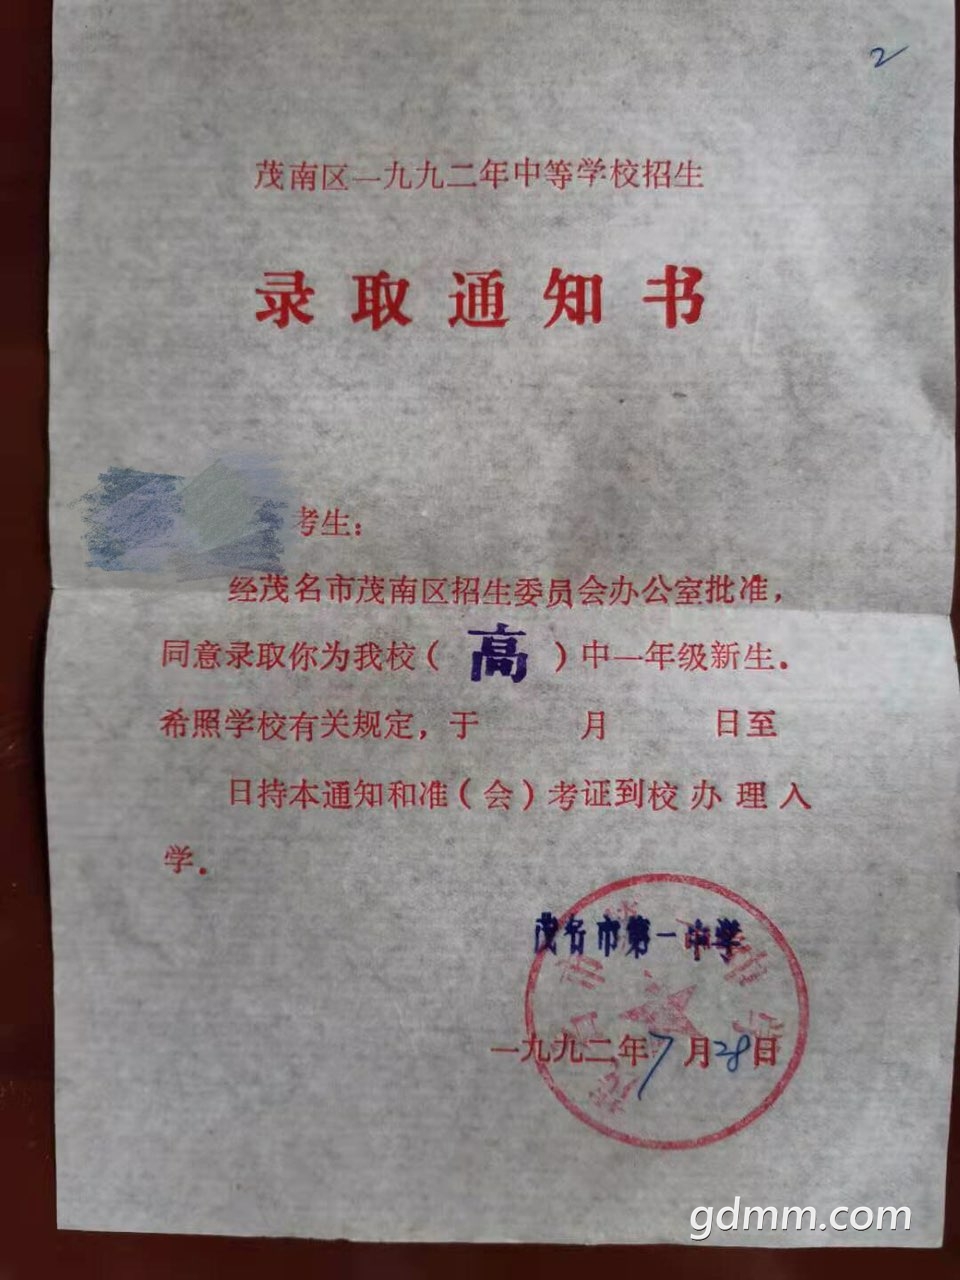 2
茂南区一九九二年中等学校招生
录取通知书
考生：
经茂名市茂南区招生委员会办公室批准，
同意录取你为我校（高）中一年级新生．
希照学校有关规定，于 月 日至
日持本通知和准（会）考证到校办理入
学．
茂名市第一中学
一九九二年7月28日
gdmm.com